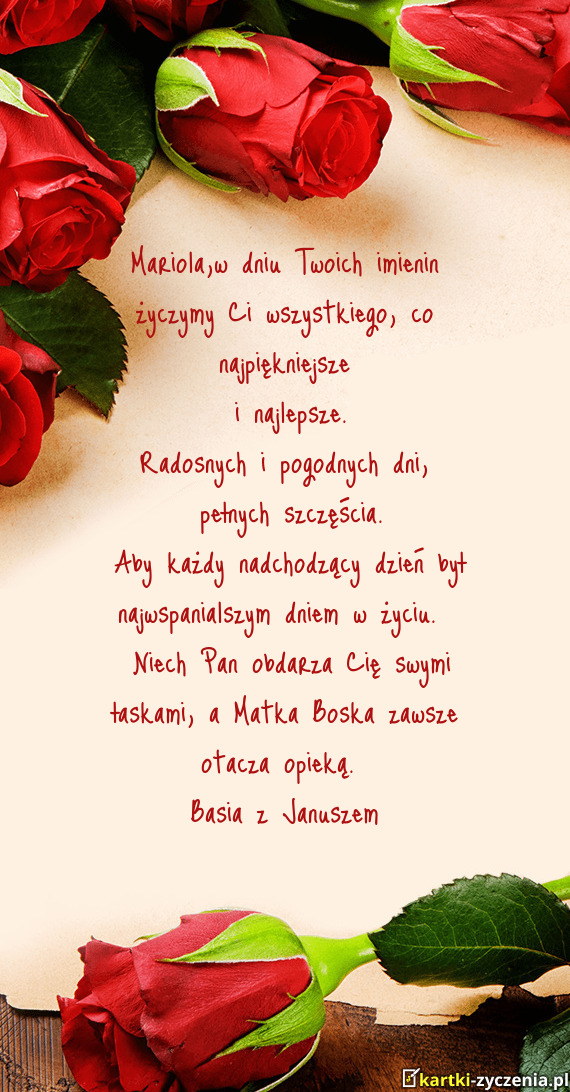 Mariola,w dniu Twoich imienin
życzymy Ci wszystkiego, co
najpiękniejsze
i najlepsze.
Radosnych i pogodnych dni,
pełnych szczęścia.
Aby każdy nadchodzący dzień był
najwspanialszym dniem w życiu.
Niech Pan obdarza Cię swymi
łaskami, a Matka Boska zawsze
otacza opieką.
Basia z Januszem
kartki-zyczenia.pl